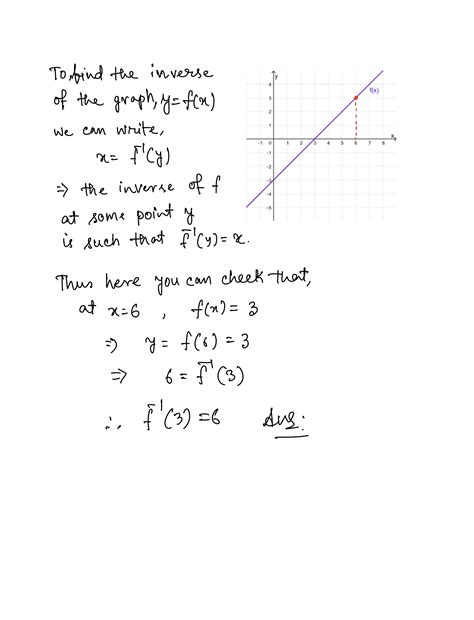 To find the inverse
of the graph, y=f(x)
we can write,
x = f⁻¹(y)
⇒ the inverse of f
at some point y
is such that f⁻¹(y) = x.
y
f(x)
x
4
3
2
1
-1 0 1 2 3 4 5 6 7 8
-1
-2
-3
-4
-5
Thus here you can check that,
at x=6 , f(x) = 3
⇒ y = f(6) = 3
⇒ 6 = f⁻¹(3)
∴ f⁻¹(3) = 6 Ans: